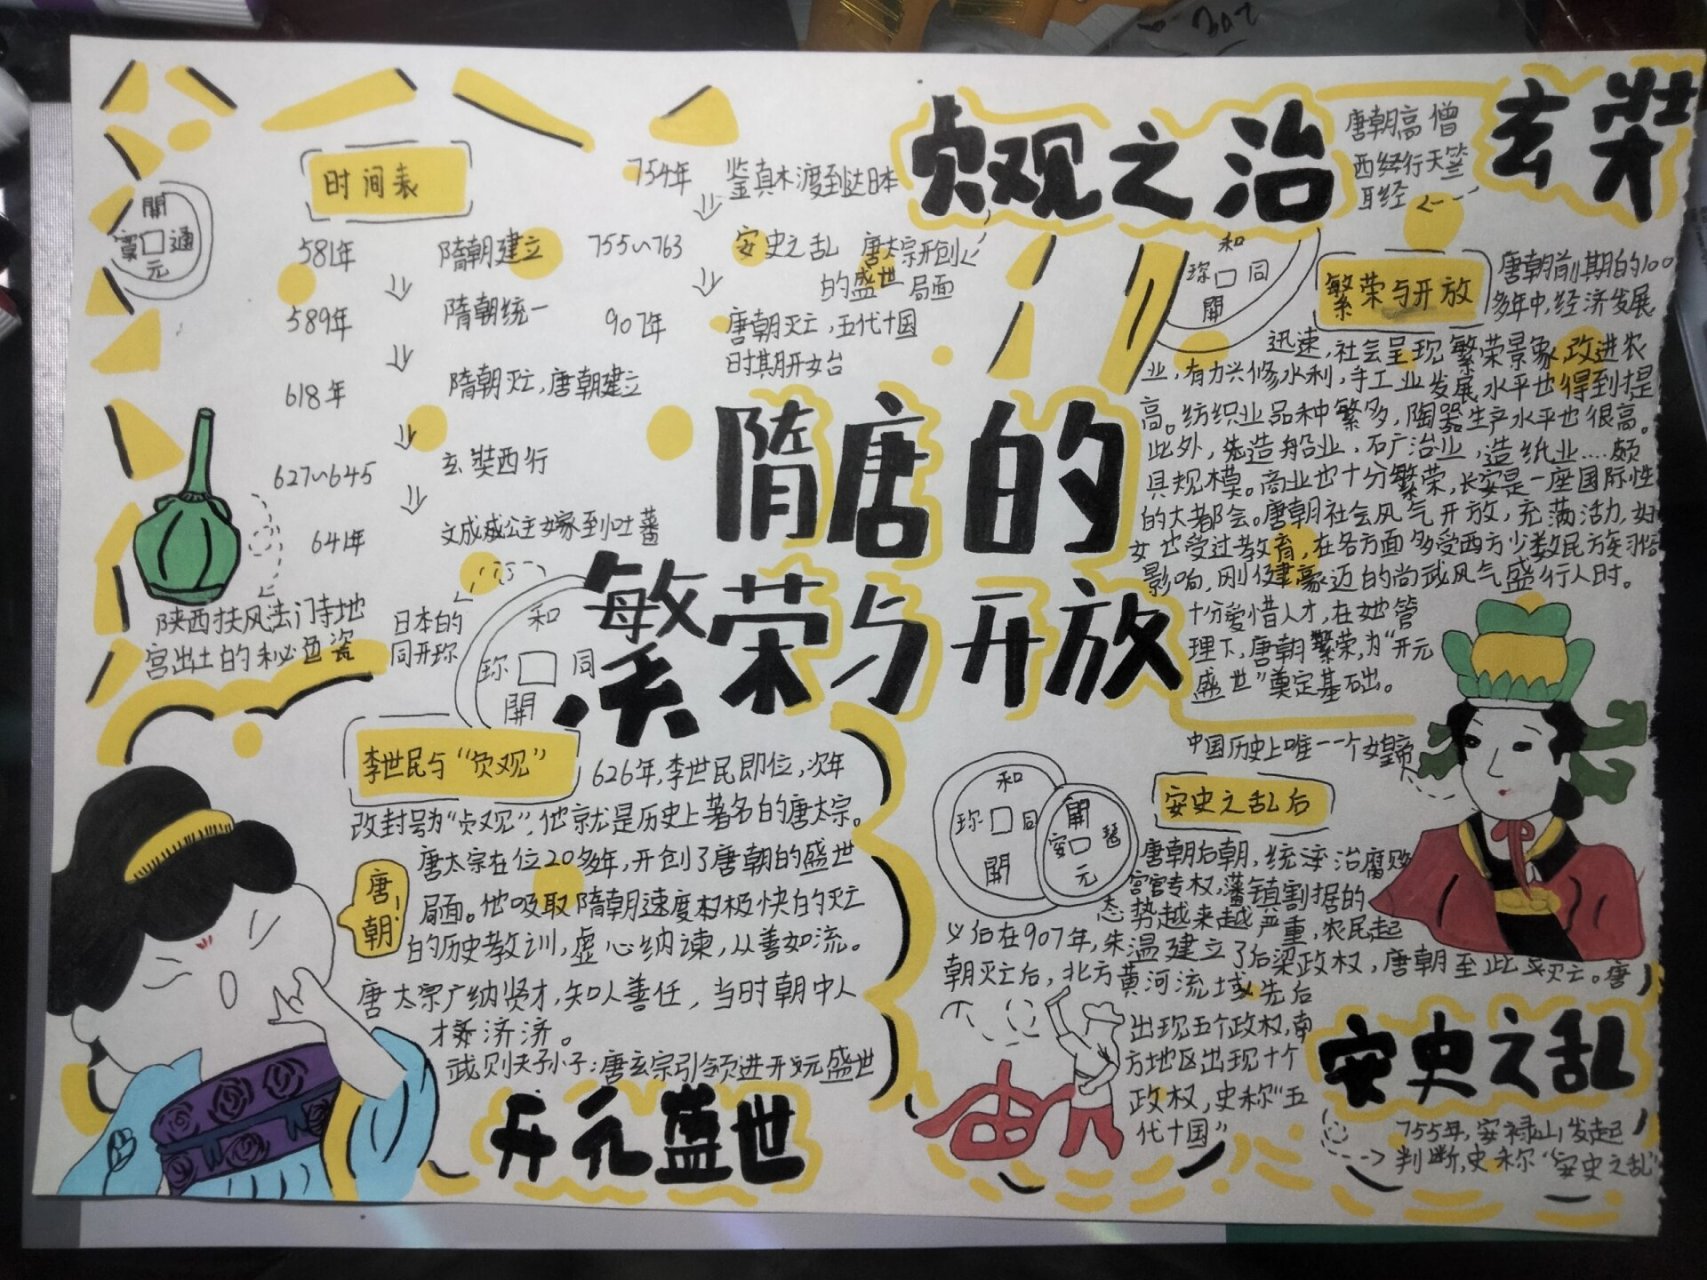 时间表
581年 隋朝建立
589年 隋朝统一
618年 隋朝灭亡,唐朝建立
627~645 玄奘西行
641年 文成公主嫁到吐蕃
754年 鉴真木渡到达日本
755~763 安史之乱
907年 唐朝灭亡,五代十国
时其月开女台
開
寳 通
元
陕西扶风法门寺地
宫出土的秘色瓷
日本的
同开珎
和
珎 同
開
贞观之治
唐太宗开创
的盛世局面
玄奘
唐朝高僧
西经行天竺
耳经
和
珎 同
開
隋唐的
繁荣与开放
繁荣与开放
唐朝前期的100
多年中,经济发展
迅速,社会呈现繁荣景象,改进农
业,有力兴修水利,手工业发展水平也得到提
高。纺织业品种繁多,陶器生产水平也很高。
此外,造船业,矿冶业,造纸业....颇
具规模。商业也十分繁荣,长安是一座国际性
的大都会。唐朝社会风气开放,充满活力,妇
女也受过教育,在各方面多受西方少数民族习俗
影响,刚健豪迈的尚武风气盛行人时。
十分爱惜人才,在她管
理下,唐朝繁荣,为“开元
盛世”奠定基础。
中国历史上唯一一个女皇帝
李世民与“贞观”
626年,李世民即位,次年
改封号为“贞观”,他就是历史上著名的唐太宗。
唐太宗在位20多年,开创了唐朝的盛世
局面。他吸取隋朝速度极快的灭亡
的历史教训,虚心纳谏,从善如流。
唐太宗广纳贤才,知人善任,当时朝中人
才济济。
唐朝
武则天孙子:唐玄宗引领进开元盛世
开元盛世
安史之乱后
和
珎 同
開
開
元
唐朝后朝,统治腐败
宦官专权,藩镇割据的
态势越来越严重,农民起
义后在907年,朱温建立了后梁政权,唐朝至此灭亡。唐
朝灭亡后,北方黄河流域先后
出现五个政权,南
方地区出现十个
政权,史称“五
代十国”
安史之乱
755年,安禄山发起
判断,史称“安史之乱”